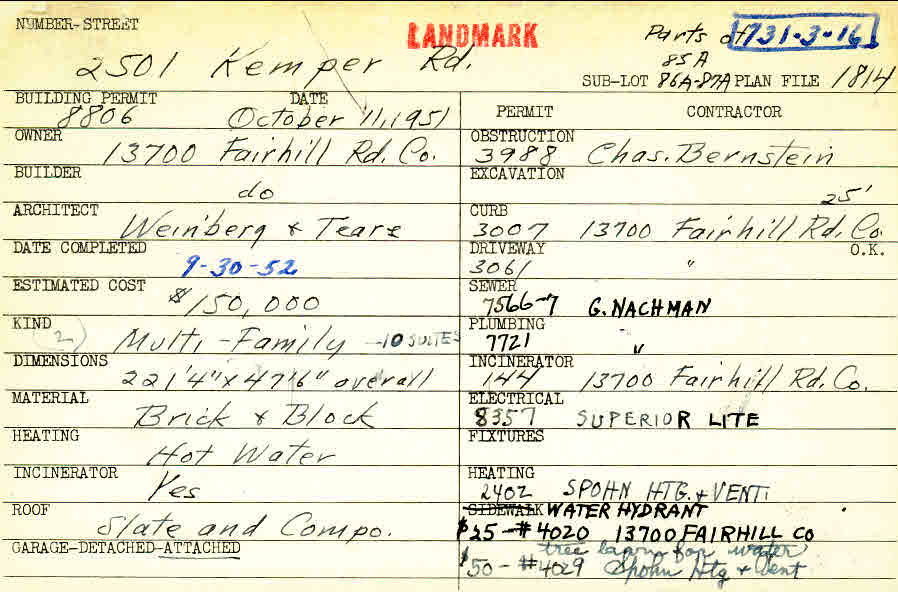 NUMBER-STREET
LANDMARK
Parts of 731-3-16
2501 Kemper Rd.
85A
SUB-LOT 86A-87A PLAN FILE 1814
BUILDING PERMIT DATE
8806 October 11, 1951
PERMIT CONTRACTOR
OWNER
13700 Fairhill Rd. Co.
OBSTRUCTION
3988 Chas. Bernstein
BUILDER
do
EXCAVATION
25'
ARCHITECT
Weinberg & Teare
CURB
3007 13700 Fairhill Rd. Co.
DATE COMPLETED
9-30-52
DRIVEWAY O.K.
3061 "
ESTIMATED COST
$150,000
SEWER
7566-7 G. NACHMAN
KIND
2 Multi-Family -10 SUITES
PLUMBING
7721 "
DIMENSIONS
221'4" x 47'6" overall
INCINERATOR
144 13700 Fairhill Rd. Co.
MATERIAL
Brick & Block
ELECTRICAL
8357 SUPERIOR LITE
HEATING
Hot Water
FIXTURES
INCINERATOR
Yes
HEATING
2402 SPOHN HTG. & VENT.
ROOF
Slate and Compo.
SIDEWALK WATER HYDRANT
$25-#4020 13700 FAIRHILL CO
GARAGE-DETACHED-ATTACHED
for water
$50-#4029 Spohn Htg & Vent